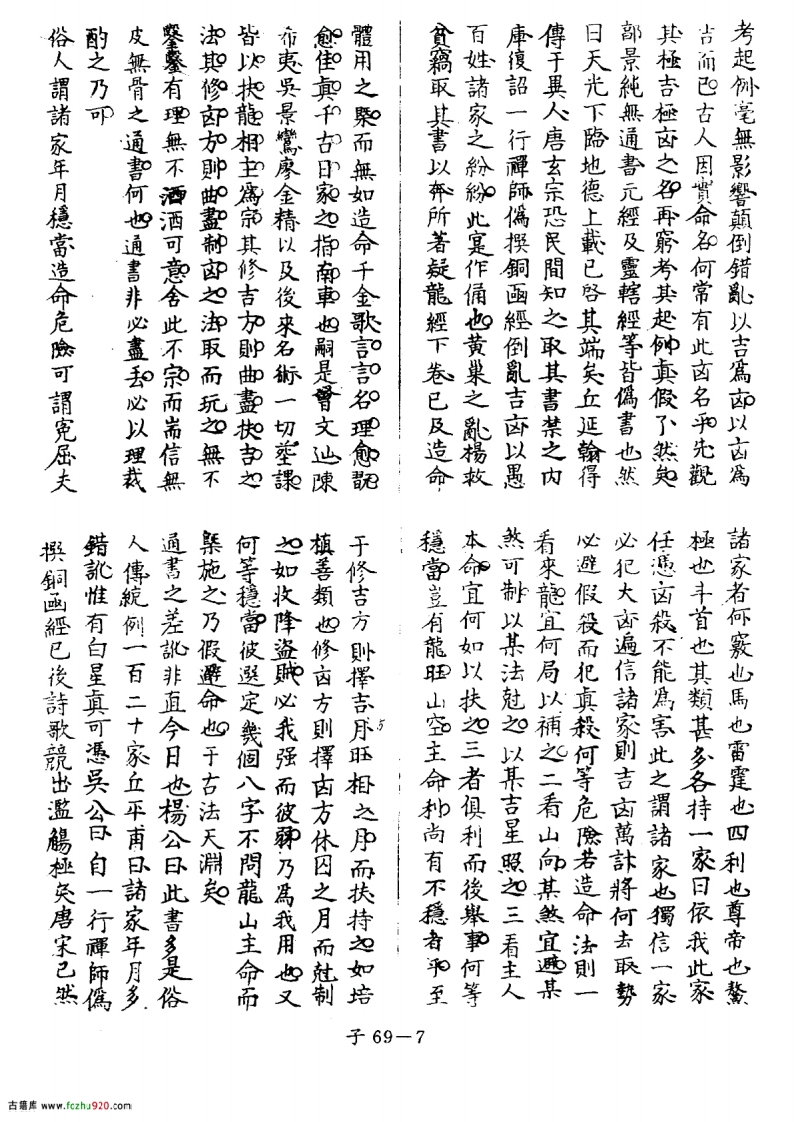 考起例毫無影響顛倒錯亂以吉為凶以凶為
吉而已古人因實命名何常有此凶名乎先觀
其極吉極凶之名再窮考其起例真假了然矣
郭景純無通書元經及靈轄經等皆偽書也然
曰天光下臨地德上載已啓其端矣丘延翰得
傳于異人唐玄宗恐民間知之取其書禁之內
庫復詔一行禪師偽撰銅函經倒亂吉凶以愚
百姓諸家之紛紛此寔作俑也黃巢之亂楊救
貧竊取其書以奔所著疑龍經下卷已及造命
體用之槩而無如造命千金歌言言名理愈翫
愈佳真千古日家之指南車也嗣是曾文辿陳
希夷吳景鸞廖金精以及後來名術一切塟課
皆以扶龍相主為宗其修吉方則曲盡扶吉之
法其修凶方則曲盡制凶之法取而玩之無不
鑿鑿有理無不洒洒可意舍此不宗而耑信無
皮無骨之通書何也通書非必盡丟必以理裁
酌之乃可
俗人謂諸家年月穩當造命危險可謂冤屈夫
諸家者何竅也馬也雷霆也四利也尊帝也鰲
極也斗首也其類甚多各持一家曰依我此家
任憑凶殺不能為害此之謂諸家也獨信一家
必犯大凶遍信諸家則吉凶萬訃將何去取勢
必避假殺而犯真殺何等危險若造命法則一
看來龍宜何局以補之二看山向某煞宜避某
煞可制以某法尅之以某吉星照之三看主人
本命宜何如以扶之三者俱利而後舉事何等
穩當豈有龍旺山空主命利尚有不穩者乎至
于修吉方則擇吉月旺相之月而扶持之如培
植善類也修凶方則擇凶方休囚之月而尅制
之如收降盜賊必我强而彼弱乃為我用也又
何等穩當彼選定幾個八字不問龍山主命而
槩施之乃假避命也于古法天淵矣
通書之差訛非直今日也楊公曰此書多是俗
人傳統例一百二十家丘平甫曰諸家年月多
錯訛惟有白星真可憑吳公曰自一行禪師偽
撰銅函經已後詩歌競出濫觴極矣唐宋已然
子 69－7
古籍库 www.fczhu920.com